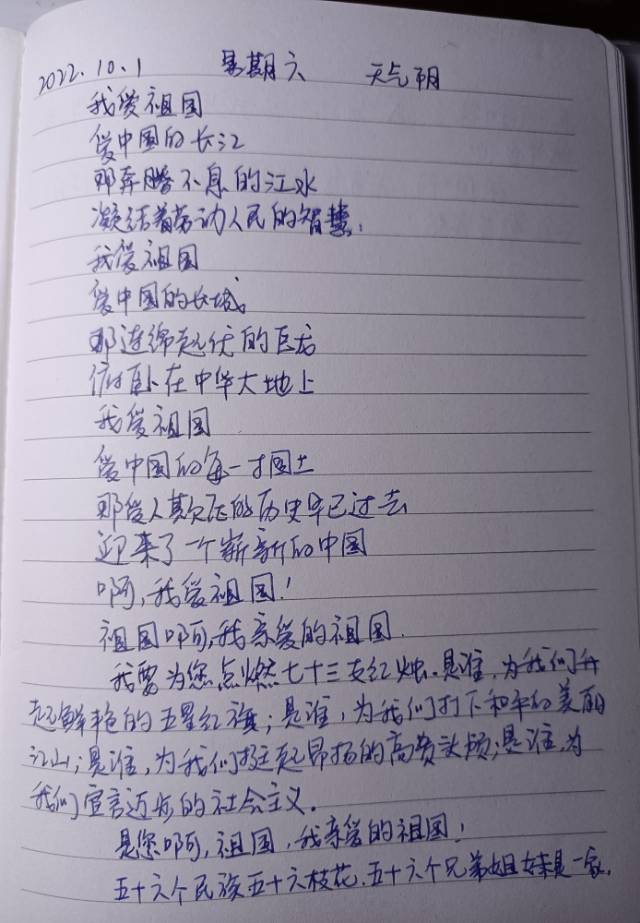 2022.10.1 星期六 天气阴
我爱祖国
爱中国的长江
那奔腾不息的江水
凝结着劳动人民的智慧;
我爱祖国
爱中国的长城,
那连绵起伏的巨龙
俯卧在中华大地上
我爱祖国
爱中国的每一寸国土
那受人欺压的历史早已过去
迎来了一个崭新的中国
啊,我爱祖国!
祖国啊,我亲爱的祖国.
我要为您点燃七十三支红烛.是谁,为我们升
起鲜艳的五星红旗;是谁,为我们打下和平的美丽
江山;是谁,为我们挺起昂扬的高贵头颅;是谁,为
我们宣言迈步的社会主义.
是您啊,祖国,我亲爱的祖国!
五十六个民族五十六枝花,五十六个兄弟姐妹是一家,